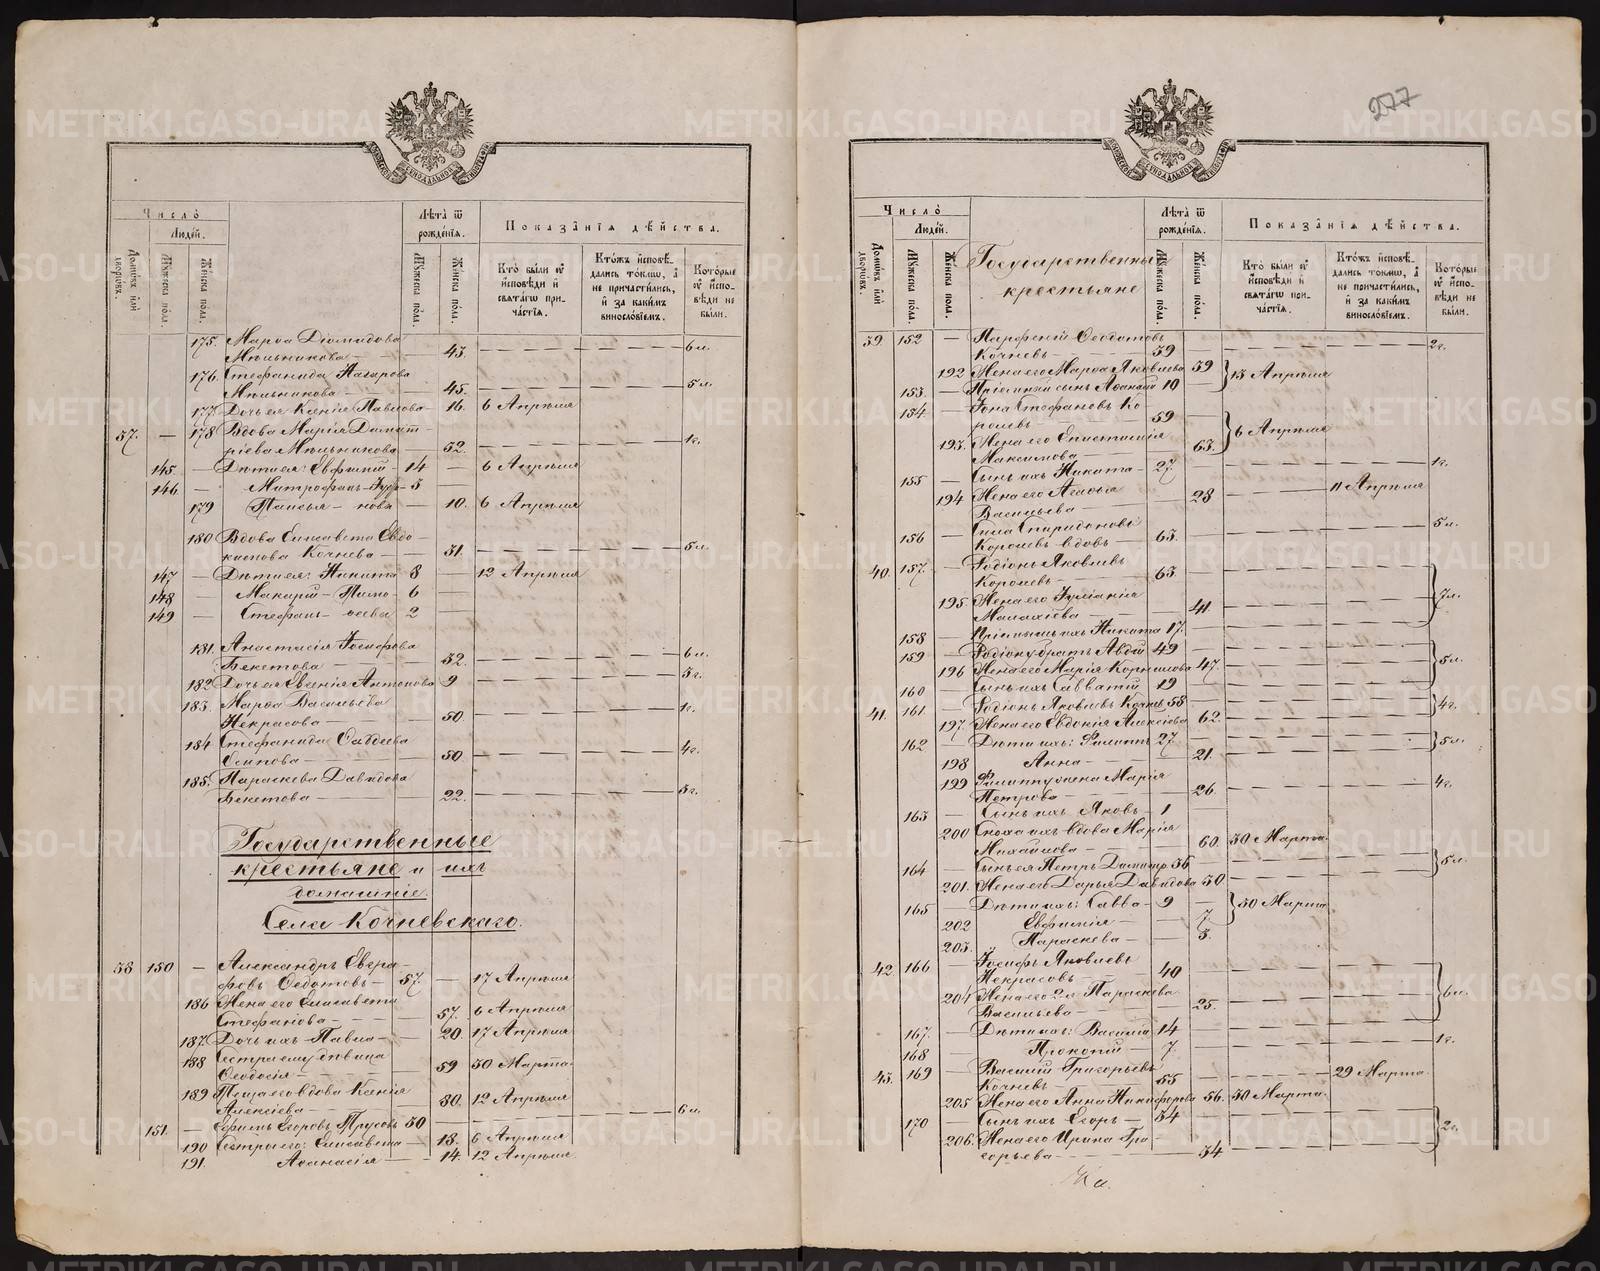 277
МОСКОВСКОЙ СѴНОДАЛЬНОЙ ТИПОГРАФІИ
Число̀
Людей.
Домѡвъ или дворѡвъ.
Мꙋжеска пола.
Женска пола.
Лѣта ѿ рожденїѧ.
Мꙋжеска пола.
Женска пола.
Показанїѧ дѣйства.
Кто были ꙋ исповѣди и свѧтагѡ причастїѧ.
Ктожъ исповѣдались токмѡ, а не причастились, и за какимъ винословїемъ.
Которые ꙋ исповѣди не были.
175. Марѳа Діомидова
Мѣльникова — 43. — 6 л.
176. Стефанида Назарова
Мѣльникова — 45. — 5 л.
177. Дочь ея Ксенія Павлова — 16. 6 Апрѣля
57. — 178 Вдова Марія Димит-
ріева Мѣльникова — 52. — 1 г.
145. — Дѣти ея: Евфимій — 14 — 6 Апрѣля
146. — Митрофанъ 5
179 Таисья — нова — 10. 6 Апрѣля
180 Вдова Елисавета Евдо-
кимова Кочнева — 31. — 5 л.
147 — Дѣти ея: Никита 8 — 12 Апрѣля
148 — Макарій — Тимо- 6 —
149 — Стефанъ — ѳеевы 2
181. Анастасія Іосифова
Бекетова — 32. — 6 л.
182 Дочь ея Евгенія Антонова 9 — 3 г.
183. Марѳа Васильева
Некрасова — 50. — 1 г.
184 Стефанида Ѳаддеева
Осипова — 50. — 4 г.
185. Параскева Давидова
Бекетова — 22. — 3 г.
Государственные
крестьяне и ихъ
домашніе.
Села Кочневскаго.
58 150 — Александръ Евгра-
фовъ Ѳедотовъ — 57. — 17 Апрѣля
186 Жена его Елисавета
Стефанова — 57. 6 Апрѣля
187. Дочь ихъ Павла — 20. 17 Апрѣля
188 Сестра ему дѣвица
Ѳеодосія — 59 30 Марта
189 Теща его вдова Ксенія
Алексіева — 80. 12 Апрѣля
151. — Ефимъ Егоровъ Трусовъ 30 — 6 л.
190 Сестры его: Елисавета — 18. 6 Апрѣля
191. Аѳанасія — 14. 12 Апрѣля
МОСКОВСКОЙ СѴНОДАЛЬНОЙ ТИПОГРАФІИ
Число̀
Людей.
Домѡвъ или дворѡвъ.
Мꙋжеска пола.
Женска пола.
Государственные
крестьяне
Лѣта ѿ рожденїѧ.
Мꙋжеска пола.
Женска пола.
Показанїѧ дѣйства.
Кто были ꙋ исповѣди и свѧтагѡ причастїѧ.
Ктожъ исповѣдались токмѡ, а не причастились, и за какимъ винословїемъ.
Которые ꙋ исповѣди не были.
39. 152 — Парфеній Ѳеодотовъ
Кочневъ — 59 — 2 г.
192 Жена его Марѳа Яковлева 59 } 13 Апрѣля
153. — Пріемный сынъ Аѳанасій 10
154 — Іона Стефановъ Ко-
ролевъ — 59 } 6 Апрѣля
193. Жена его Епистимія
Максимова — 63.
155 — Сынъ ихъ Никита — 27 — 1 г.
194 Жена его Агаѳья
Васильева — 28 — 11 Апрѣля
156 — Сила Спиридоновъ
Королевъ вдовъ — 63. — 5 л.
40. 157. — Родіонъ Яковлевъ
Королевъ — 63. — } 7 л.
195. Жена его Іуліанія
Малахіева — 41
158 — Пріемышъ ихъ Никита 17.
159 — Родіону братъ Авдій 49 — } 5 л.
196 Жена его Марія Корнилова 47
160 — Сынъ ихъ Савватій 19
41. 161. — Родіонъ Яковлевъ Кочневъ 58 — } 4 г.
197. Жена его Евдокія Алексіева 62.
162 — Дѣти ихъ: Филиппъ 27 — } 5 л.
198 Анна — 21.
199 Филиппу жена Марія
Петрова — 26. — 4 г.
163 — Сынъ ихъ Яковъ — 1
200 Сноха ихъ вдова Марія
Михайлова — 60. 30 Марта.
164 — Сынъ ея Петръ 36 — } 5 л.
201. Жена его Дарья Давидова 30
165 — Дѣти ихъ: Савва — 9 — } 30 Марта
202 Евфимія — 7.
203. „ Параскева — 3.
42. 166 — Іосифъ Яковлевъ
Некрасовъ — 40 — } 6 л.
204 Жена его 2я Параскева
Васильева — 25.
167. — Дѣти ихъ: Василій 14
168 — Прокопій — 7. — 1 г.
43. 169 — Василій Григорьевъ
Кочневъ — 55 — 29 Марта.
205 Жена его Анна Никифорова 56. 30 Марта.
170 — Сынъ ихъ Егоръ — 34 — } 2 г.
206. Жена его Ирина Гри-
горьева — 34.